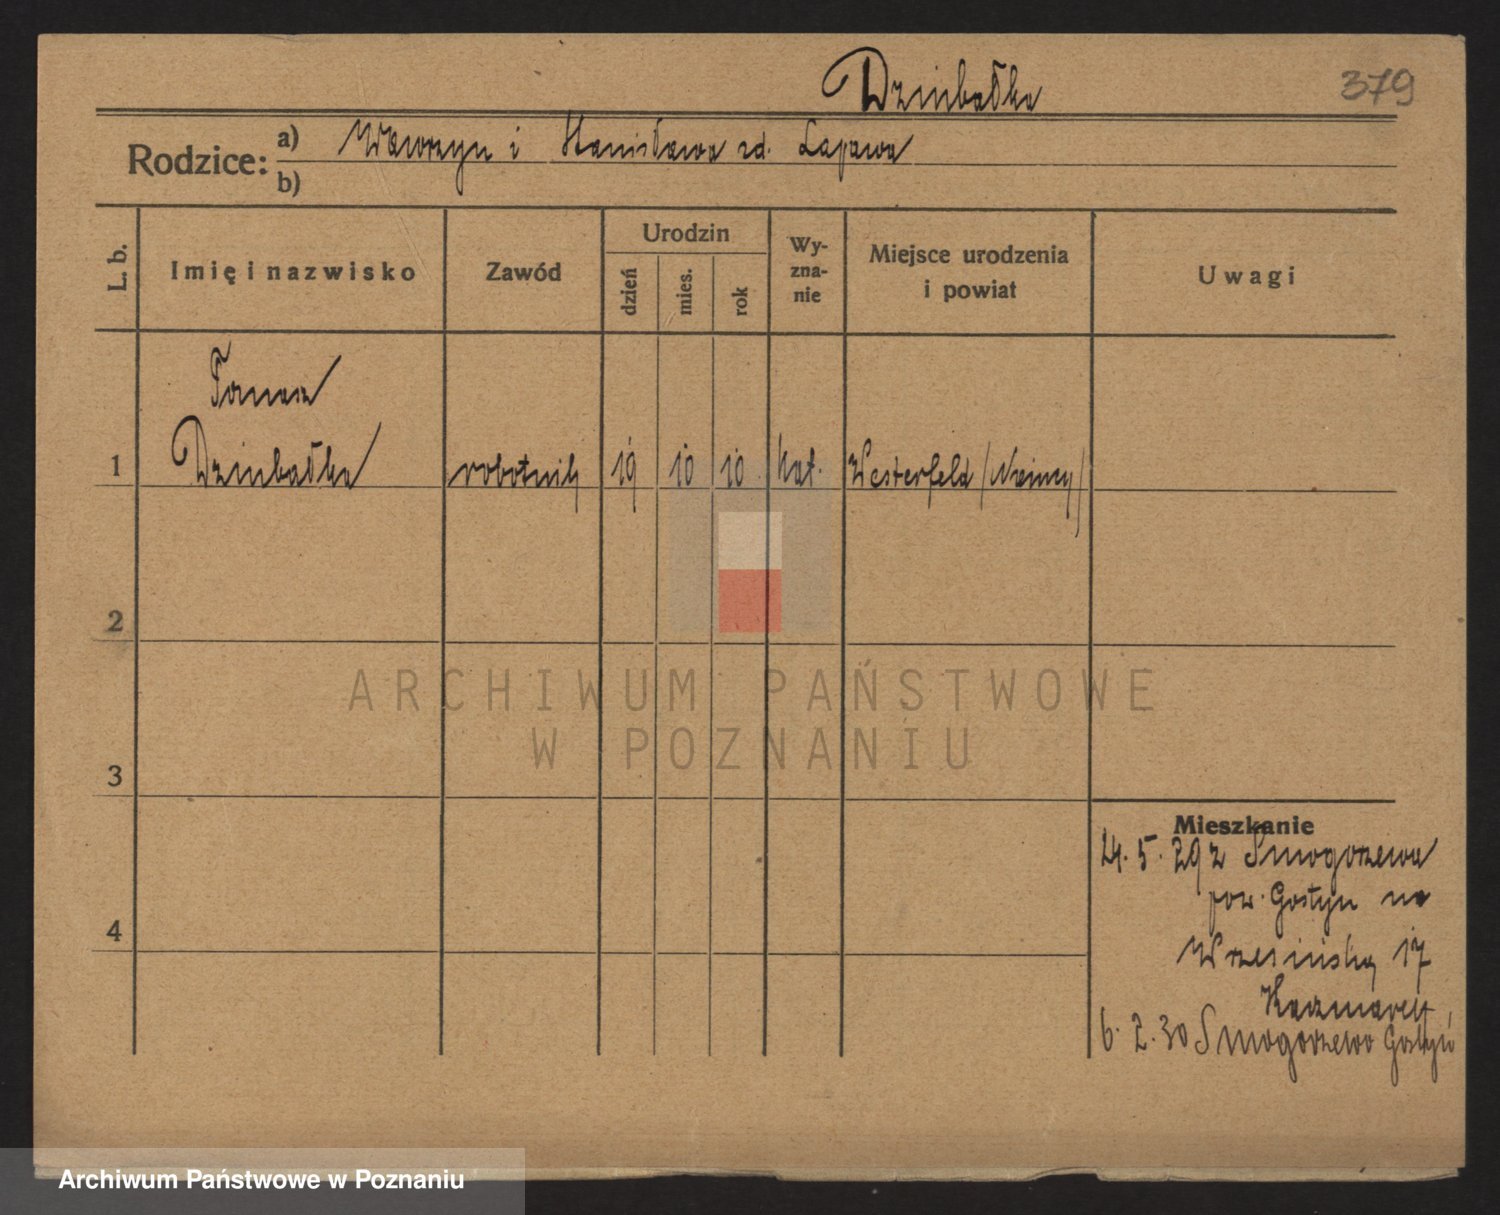 Dziubałka
379
Rodzice:
a) Wawrzyn i Stanisława zd. Łapawa
b)
L. b.
Imię i nazwisko
Zawód
Urodzin
dzień
mies.
rok
Wy-
zna-
nie
Miejsce urodzenia
i powiat
Uwagi
Dziubałka
1 robotnik 19 10 10 kat. Westerfeld /Niemcy/
2
3
4
Mieszkanie
4. 5. 29 z Smogorzewa
pow. Gostyn na
Wrzesińską 17
Kaczmarek
6. 2. 30 Smogorzewo Gostyń
ARCHIWUM PAŃSTWOWE
W POZNANIU
Archiwum Państwowe w Poznaniu